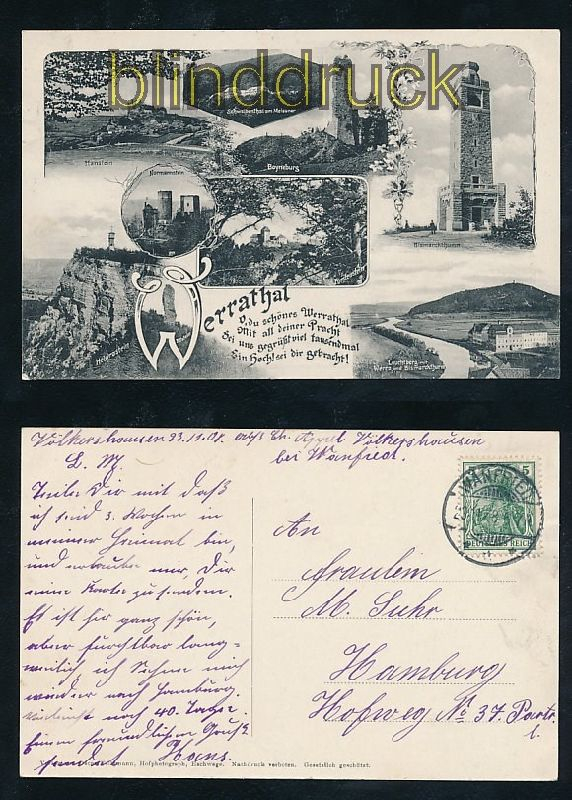 blinddruck
Hanstein
Schwalbenthal am Meissner
Boyneburg
Normannstein
Bismarckthurm
Werrathal
O, du schönes Werrathal
Mit all deiner Pracht
Sei uns gegrüßt viel tausendmal
Ein Hoch! sei dir gebracht!
Leuchtberg mit
Werra und Bismarckthurm
Völkershausen
Appel Völkershausen
bei Wanfried.
L. M.
Teile Dir mit daß
ich seid 3. Wochen in
meiner Heimat bin,
und erlaube mir, Dir
eine Karte zu senden.
Es ist hir ganz schön,
aber furchtbar lang-
weilich ich sehne mich
wieder nach Hamburg.
vieleicht noch 40. Tage.
Einen freundlichen Gruß
sendet Hans.
WANFRIED
5
DEUTSCHES REICH
An
Fräulein
M. Suhr
Hamburg
Hofweg No 37. Partr.
l.
Hofphotograph, Eschwege. Nachdruck verboten. Gesetzlich geschützt.